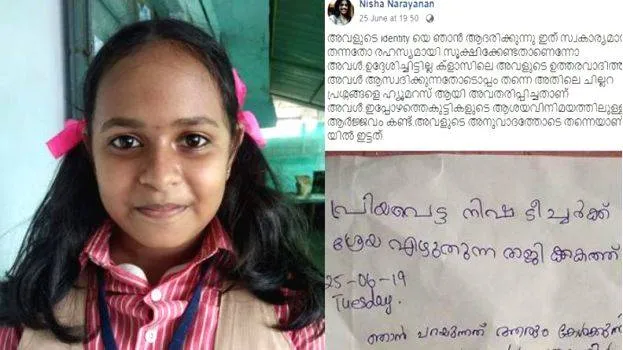 Nisha Narayanan
25 June at 19:50
അവളുടെ identity യെ ഞാൻ ആദരിക്കുന്നു ഇത് സ്വകാര്യമാ
തന്നതോ രഹസ്യമായി സൂക്ഷിക്കേണ്ടതാണെന്നോ
അവൾ ഉദ്ദേശിച്ചിട്ടില്ല ക്ളാസിലെ അവളുടെ ഉത്തരവാദിത്ത
അവൾ ആസ്വദിക്കുന്നതോടൊപ്പം തന്നെ അതിലെ ചില്ലറ
പ്രശ്നങ്ങളെ ഹ്യൂമറസ് ആയി അവതരിപ്പിച്ചതാണ്
അവൾ ഇപ്പോഴത്തെകുട്ടികളുടെ ആശയവിനിമയത്തിലുള്ള
ആർജ്ജവം കണ്ട്.അവളുടെ അനുവാദത്തോടെ തന്നെയാണ്
യിൽ ഇട്ടത്
പ്രിയപ്പെട്ട നിഷ ടീച്ചർക്ക്
ശ്രേയ എഴുതുന്ന രാജിക്കത്ത്
25-06-19
Tuesday.
ഞാൻ പറയുന്നത്